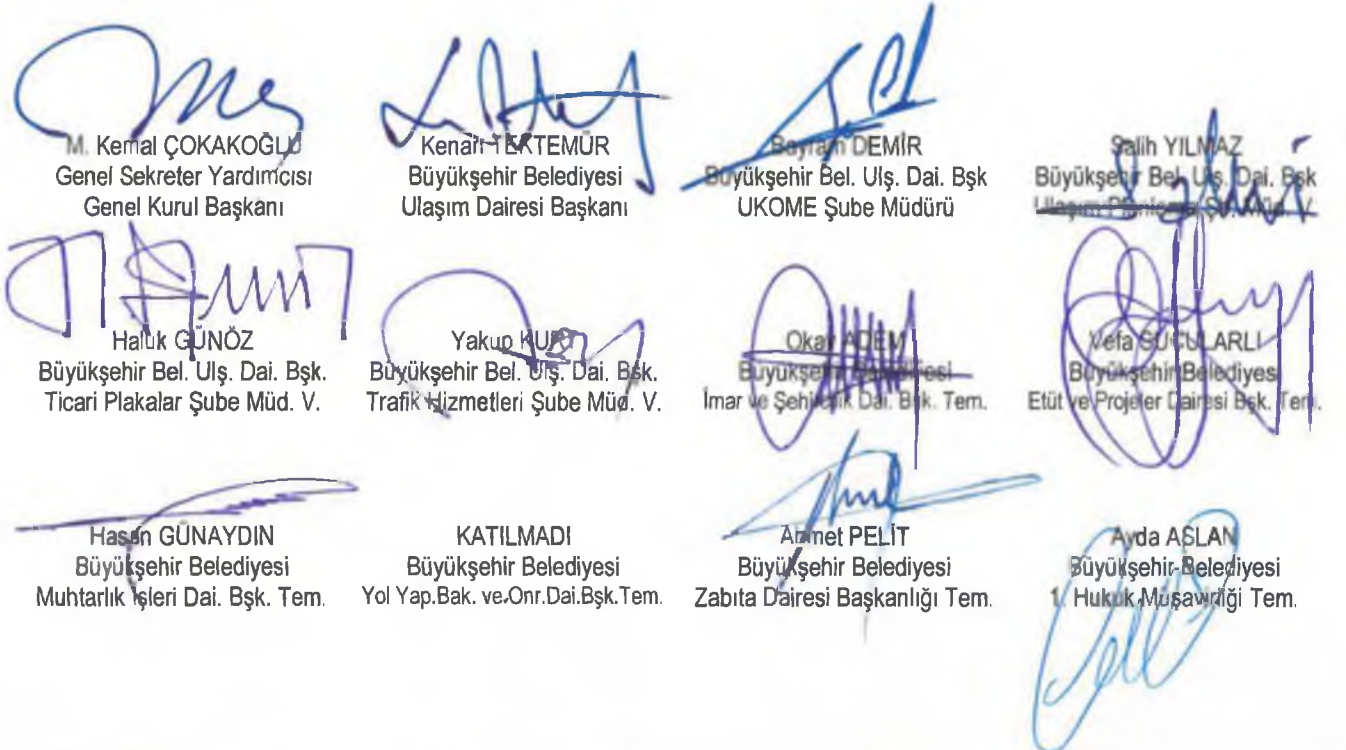 M. Kemal ÇOKAKOĞLU
Genel Sekreter Yardımcısı
Genel Kurul Başkanı
Kenan TEKTEMÜR
Büyükşehir Belediyesi
Ulaşım Dairesi Başkanı
Bayram DEMİR
Büyükşehir Bel. Ulş. Dai. Bşk
UKOME Şube Müdürü
Salih YILMAZ
Büyükşehir Bel. Ulş. Dai. Bşk
Ulaşım Planlama Şb. Müd. V.
Haluk GÜNÖZ
Büyükşehir Bel. Ulş. Dai. Bşk.
Ticari Plakalar Şube Müd. V.
Yakup KURT
Büyükşehir Bel. Ulş. Dai. Bşk.
Trafik Hizmetleri Şube Müd. V.
Okay ADEM
Büyükşehir Belediyesi
İmar ve Şehircilik Dai. Bşk. Tem.
Vefa SUCULARLI
Büyükşehir Belediyesi
Etüt ve Projeler Dairesi Bşk. Tem.
Hasan GÜNAYDIN
Büyükşehir Belediyesi
Muhtarlık İşleri Dai. Bşk. Tem.
KATILMADI
Büyükşehir Belediyesi
Yol Yap.Bak. ve.Onr.Dai.Bşk.Tem.
Ahmet PELİT
Büyükşehir Belediyesi
Zabıta Dairesi Başkanlığı Tem.
Ayda ASLAN
Büyükşehir Belediyesi
1. Hukuk Müşavirliği Tem.